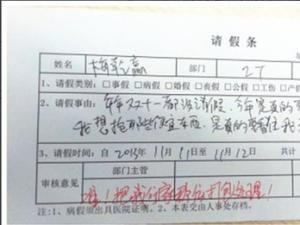 请假条
姓名 梅乾嬴 部门 2T
1、请假类别:□事假 □病假 □婚假 □丧假 □公假 □工伤 □产假
2、请假事由:年年双十一都没请假,今年是真的
我想抢那些便宜东西,是真的要看住我
3、请假时间:自2015年11月11日至11月12日
部门主管
审核意见 准!把我们家
注:1、病假须出具医院证明。2、本表交由人事处存档。